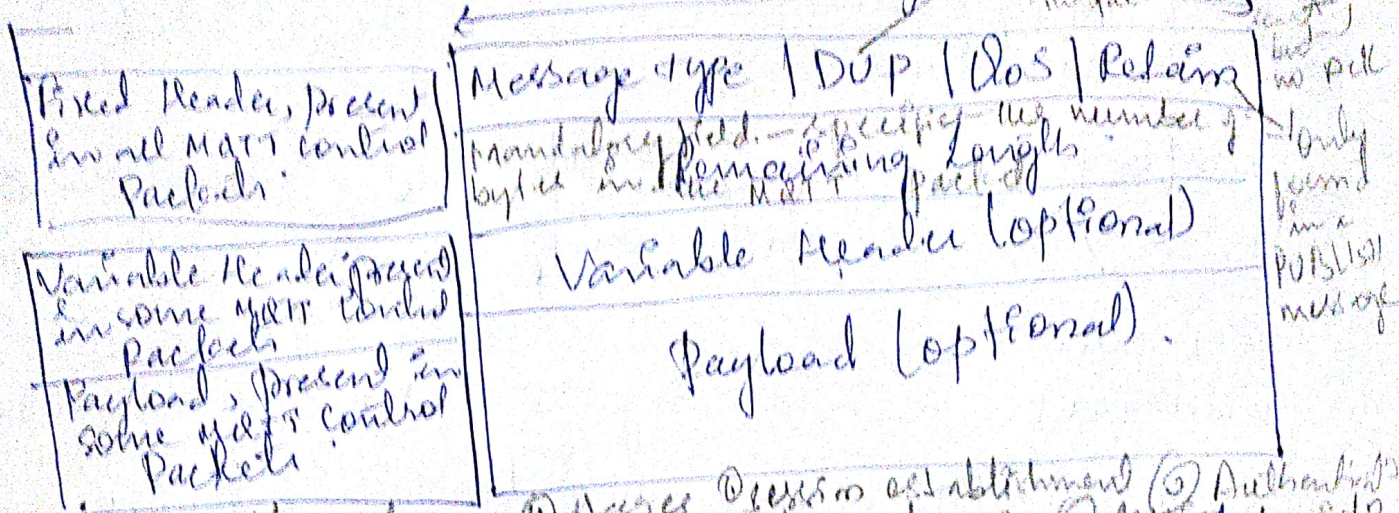 Fixed Header, present
in all MQTT control
Packets.
Variable Header, present
in some MQTT Control
Packets
Payload, present in
some MQTT Control
Packets
Message type | DUP | QoS | Retain
mandatory field. - specifies the number of
Remaining Length
bytes in the MQTT packet
Variable Header (optional)
Payload (optional).
no Ack
only
found
in a
PUBLISH
message
session establishment (2)